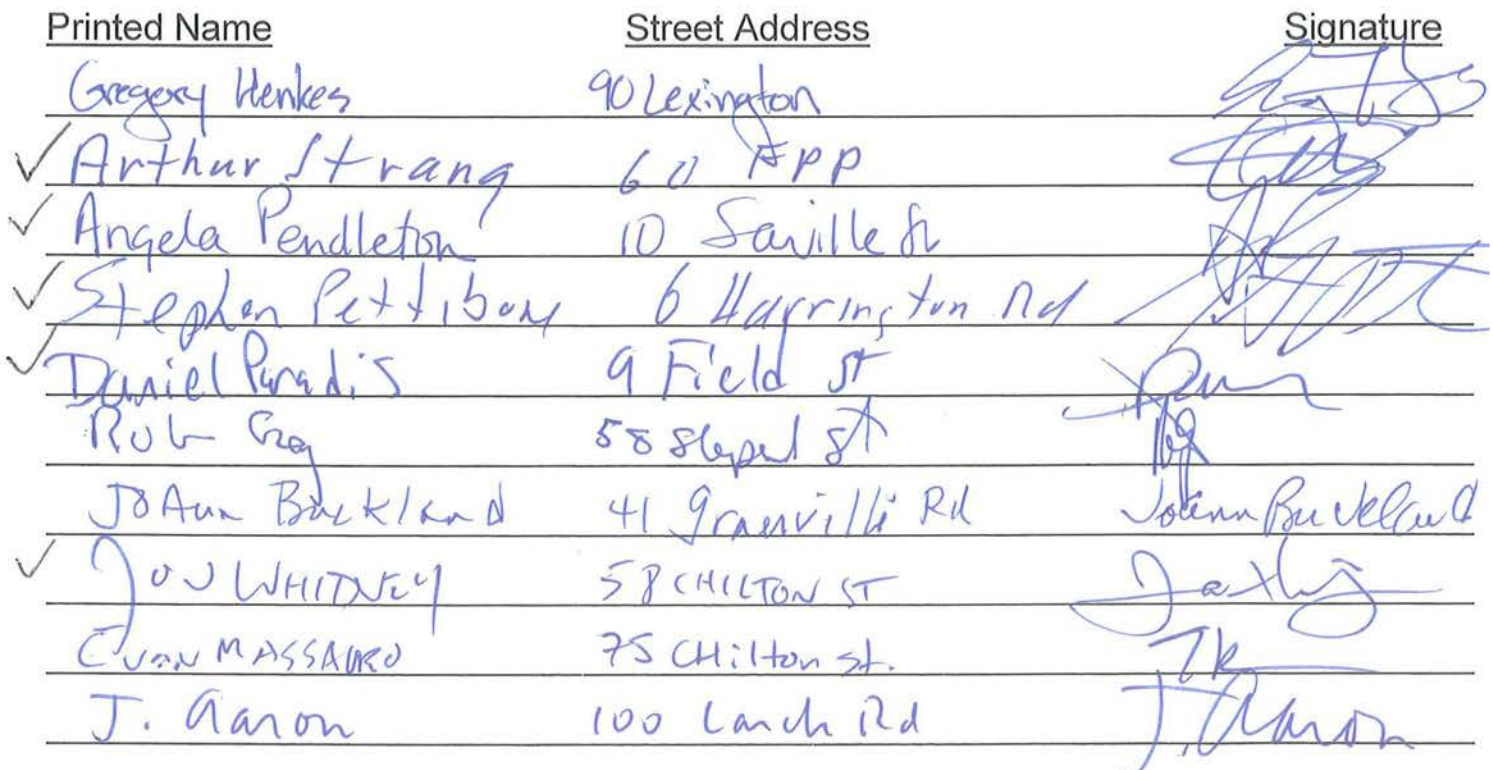 Printed Name Street Address Signature
Gregory Henkes 90 Lexington
Arthur Strang 60 App
Angela Pendleton 10 Saville St
Stephen Pettibone 6 Harrington Rd
Daniel Paradis 9 Field St
Rob 58 St
JoAnn Buckland 41 Granville Rd JoAnn Buckland
JON WHITNEY 58 CHILTON ST
Evan MASSAURO 75 CHilton St.
J. Aaron 100 Larch Rd J. Aaron